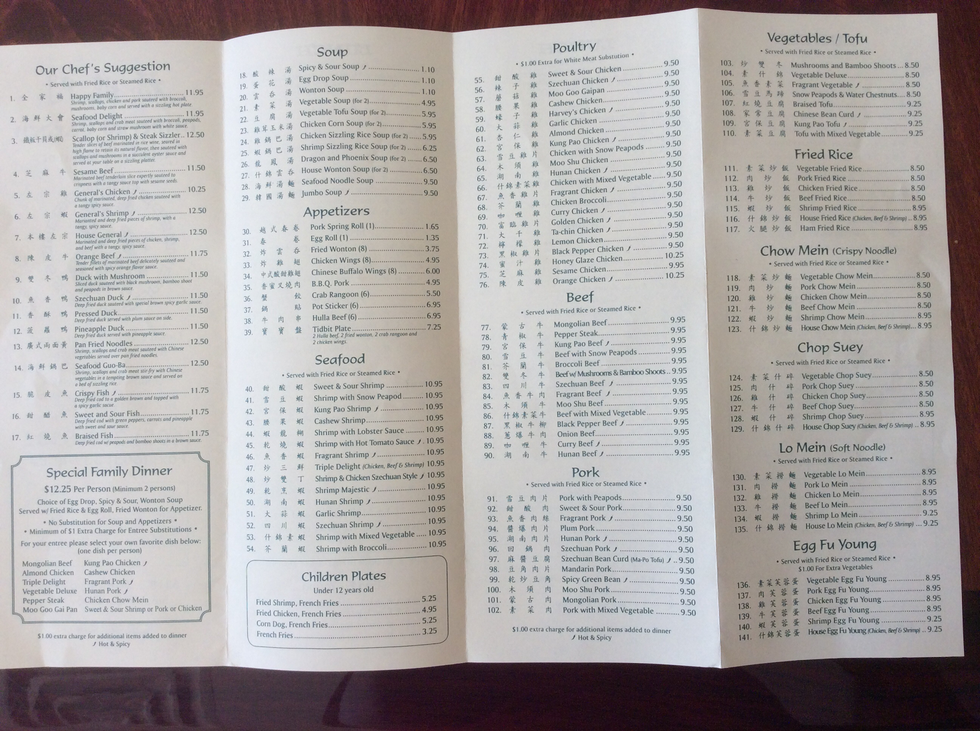 Our Chef's Suggestion
• Served with Fried Rice or Steamed Rice •
1. 全家福 Happy Family 11.95
Shrimp, scallops, chicken and pork sauteed with broccoli, mushrooms, baby corn and served with a sizzling hot plate
2. 海鮮大會 Seafood Delight 11.95
Shrimp, scallops and crab meat sauteed with broccoli, peapods, carrot, baby corn and straw mushroom with white sauce
3. Scallop (or Shrimp) & Steak Sizzler 12.50
4. 芝麻牛 Sesame Beef 11.50
Marinated beef tenderloin slice expertly sauteed to crispness with a tangy sauce top with sesame seeds.
5. 左宗雞 General's Chicken 10.25
Chunk of marinated, deep fried chicken sauteed with a tangy spicy sauce
6. 左宗蝦 General's Shrimp 12.50
Marinated and deep fried pieces of shrimp, with a tangy spicy sauce.
7. 本樓左宗 House General 12.50
Marinated and deep fried pieces of chicken, shrimp, and beef with a tangy, spicy sauce.
8. 陳皮牛 Orange Beef 11.75
Tender fillets of marinated beef delicately sauteed and seasoned with spicy orange flavor sauce.
9. 雙冬鴨 Duck with Mushroom 11.50
Sliced duck sauteed with black mushroom, bamboo shoots and peapods in brown sauce
10. 魚香鴨 Szechuan Duck 11.50
Deep fried duck sauteed with special brown spicy garlic sauce
11. 香酥鴨 Pressed Duck 11.50
Deep fried duck served with plum sauce on side.
12. 菠蘿鴨 Pineapple Duck 11.50
Deep fried duck served with pineapple sauce.
13. 廣式兩面黃 Pan Fried Noodles 12.50
Shrimp, scallops and crab meat sauteed with Chinese vegetables served over pan fried noodles.
14. 海鮮鍋巴 Seafood Guo-Ba 12.50
Shrimp, scallops and crab meat stir-fry with Chinese vegetables in a tempting brown sauce and served on a bed of sizzling rice
15. 龍皮魚 Crispy Fish 11.75
Deep fried cod to a golden brown and topped with a spicy garlic sauce
16. 甜酸魚 Sweet and Sour Fish 11.75
Deep fried cod with green peppers, carrots and pineapple with sweet and sour sauce
17. 紅燒魚 Braised Fish 11.75
Deep fried cod w/ peapods and bamboo shoots in a brown sauce
Special Family Dinner
$12.25 Per Person (Minimum 2 persons)
Choice of Egg Drop, Spicy & Sour, Wonton Soup
Served w/ Fried Rice & Egg Roll, Fried Wonton for Appetizer.
• No Substitution for Soup and Appetizers •
• Minimum of $1 Extra Charge for Entree Substitutions •
For your entree please select your own favorite dish below:
(one dish per person)
Mongolian Beef Kung Pao Chicken
Almond Chicken Cashew Chicken
Triple Delight Fragrant Pork
Vegetable Deluxe Hunan Pork
Pepper Steak Chicken Chow Mein
Moo Goo Gai Pan Sweet & Sour Shrimp or Pork or Chicken
$1.00 extra charge for additional items added to dinner
Hot & Spicy
Soup
18. 酸辣湯 Spicy & Sour Soup 1.10
19. 蛋花湯 Egg Drop Soup 1.10
20. 雲吞湯 Wonton Soup 1.10
21. 素菜湯 Vegetable Soup (for 2) 4.95
22. 豆腐湯 Vegetable Tofu Soup (for 2) 5.95
23. 雞茸玉米湯 Chicken Corn Soup (for 2) 5.95
24. 雞鍋巴湯 Chicken Sizzling Rice Soup (for 2) 5.95
25. 蝦鍋巴湯 Shrimp Sizzling Rice Soup (for 2) 6.25
26. 龍鳳湯 Dragon and Phoenix Soup (for 2) 6.50
27. 什錦雲吞 House Wonton Soup (for 2) 6.50
28. 海鮮湯麵 Seafood Noodle Soup 9.50
29. 韓國湯麵 Jumbo Soup 9.50
Appetizers
30. 越式春卷 Pork Spring Roll (1) 1.65
31. 春卷 Egg Roll (1) 1.35
32. 炸雲吞 Fried Wonton (8) 3.75
33. 炸雞翅 Chicken Wings (8) 4.95
34. 中式酸甜雞翅 Chinese Buffalo Wings (8) 6.00
35. 香蜜叉燒肉 B.B.Q. Pork 4.95
36. 蟹餃 Crab Rangoon (6) 5.50
37. 鍋貼 Pot Sticker (6) 6.95
38. 牛肉串 Hulla Beef (6) 6.95
39. 寶寶盤 Tidbit Plate 7.25
2 hulla beef, 2 fried wonton, 2 crab rangoon and 2 chicken wings
Seafood
• Served with Fried Rice or Steamed Rice •
40. 甜酸蝦 Sweet & Sour Shrimp 10.95
41. 雪豆蝦 Shrimp with Snow Peapod 10.95
42. 宮保蝦 Kung Pao Shrimp 10.95
43. 腰果蝦 Cashew Shrimp 10.95
44. 蝦龍糊 Shrimp with Lobster Sauce 10.95
45. 乾燒蝦 Shrimp with Hot Tomato Sauce 10.95
46. 魚香蝦 Fragrant Shrimp 10.95
47. 炒三鮮 Triple Delight (Chicken, Beef & Shrimp) 10.95
48. 炒雙丁 Shrimp & Chicken Szechuan Style 10.95
49. 乾烹蝦 Shrimp Majestic 10.95
50. 湖南蝦 Hunan Shrimp 10.95
51. 大蒜蝦 Garlic Shrimp 10.95
52. 四川蝦 Szechuan Shrimp 10.95
53. 什錦素蝦 Shrimp with Mixed Vegetable 10.95
54. 芥蘭蝦 Shrimp with Broccoli 10.95
Children Plates
Under 12 years old
Fried Shrimp, French Fries 5.25
Fried Chicken, French Fries 4.95
Corn Dog, French Fries 5.25
French Fries 3.25
Poultry
• $1.00 Extra for White Meat Substitution •
55. 甜酸雞 Sweet & Sour Chicken 9.50
56. 辣子雞 Szechuan Chicken 9.50
57. 蘑菇雞 Moo Goo Gaipan 9.50
58. 腰果雞 Cashew Chicken 9.50
59. 蠔子雞 Harvey's Chicken 9.50
60. 大蒜雞 Garlic Chicken 9.50
61. 杏仁雞 Almond Chicken 9.50
62. 宮保雞 Kung Pao Chicken 9.50
63. 雪豆雞片 Chicken with Snow Peapods 9.50
64. 木須雞 Moo Shu Chicken 9.50
65. 湖南雞 Hunan Chicken 9.50
66. 什錦素菜雞 Chicken with Mixed Vegetable 9.50
67. 魚香雞片 Fragrant Chicken 9.50
68. 芥蘭雞 Chicken Broccoli 9.50
69. 咖喱雞 Curry Chicken 9.50
70. 富臨雞片 Golden Chicken 9.50
71. 大千雞 Ta-chin Chicken 9.50
72. 檸檬雞 Lemon Chicken 9.50
73. 黑椒雞片 Black Pepper Chicken 9.50
74. 蜜汁雞 Honey Glaze Chicken 10.25
75. 芝麻雞 Sesame Chicken 9.95
76. 陳皮雞 Orange Chicken 10.25
Beef
• Served with Fried Rice or Steamed Rice •
77. 蒙古牛 Mongolian Beef 9.95
78. 青椒牛 Pepper Steak 9.95
79. 宮保牛 Kung Pao Beef 9.95
80. 雪豆牛 Beef with Snow Peapods 9.95
81. 芥蘭牛 Broccoli Beef 9.95
82. 雙冬牛 Beef w/ Mushrooms & Bamboo Shoots 9.95
83. 四川牛 Szechuan Beef 9.95
84. 魚香牛肉 Fragrant Beef 9.95
85. 木須牛 Moo Shu Beef 9.95
86. 什錦素菜牛 Beef with Mixed Vegetable 9.95
87. 黑椒牛柳 Black Pepper Beef 9.95
88. 蔥爆牛肉 Onion Beef 9.95
89. 咖喱牛 Curry Beef 9.95
90. 湖南牛 Hunan Beef 9.95
Pork
• Served with Fried Rice or Steamed Rice •
91. 雪豆肉片 Pork with Peapods 9.50
92. 甜酸肉 Sweet & Sour Pork 9.50
93. 魚香肉絲 Fragrant Pork 9.50
94. 醬爆肉片 Plum Pork 9.50
95. 湖南肉片 Hunan Pork 9.50
96. 回鍋肉 Szechuan Pork 9.50
97. 麻醬豆腐 Szechuan Bean Curd (Ma-Po Tofu) 9.50
98. 豆角肉片 Mandarin Pork 9.50
99. 乾炒豆角 Spicy Green Bean 9.50
100. 木須肉 Moo Shu Pork 9.50
101. 蒙古肉 Mongolian Pork 9.50
102. 素菜肉 Pork with Mixed Vegetable 9.50
$1.00 extra charge for additional items added to dinner
Hot & Spicy
Vegetables / Tofu
• Served with Fried Rice or Steamed Rice •
103. 炒雙冬 Mushrooms and Bamboo Shoots 8.50
104. 素什錦 Vegetable Deluxe 8.50
105. 魚香素菜 Fragrant Vegetable 8.50
106. 雪豆馬蹄 Snow Peapods & Water Chestnuts 8.50
107. 紅燒豆腐 Braised Tofu 9.25
108. 家常豆腐 Chinese Bean Curd 9.25
109. 宮保豆腐 Kung Pao Tofu 9.25
110. 素菜豆腐 Tofu with Mixed Vegetable 9.25
Fried Rice
111. 素菜炒飯 Vegetable Fried Rice 8.95
112. 肉炒飯 Pork Fried Rice 8.95
113. 雞炒飯 Chicken Fried Rice 8.95
114. 牛炒飯 Beef Fried Rice 8.50
115. 蝦炒飯 Shrimp Fried Rice 8.95
116. 什錦炒飯 House Fried Rice (Chicken, Beef & Shrimp) 8.95
117. 火腿炒飯 Ham Fried Rice 8.95
Chow Mein (Crispy Noodle)
• Served with Fried Rice or Steamed Rice •
118. 素菜炒麵 Vegetable Chow Mein 8.50
119. 肉炒麵 Pork Chow Mein 8.50
120. 雞炒麵 Chicken Chow Mein 8.50
121. 牛炒麵 Beef Chow Mein 8.50
122. 蝦炒麵 Shrimp Chow Mein 8.95
123. 什錦炒麵 House Chow Mein (Chicken, Beef & Shrimp) 8.95
Chop Suey
• Served with Fried Rice or Steamed Rice •
124. 素菜什碎 Vegetable Chop Suey 8.50
125. 肉什碎 Pork Chop Suey 8.50
126. 雞什碎 Chicken Chop Suey 8.50
127. 牛什碎 Beef Chop Suey 8.50
128. 蝦什碎 Shrimp Chop Suey 8.95
129. 什錦什碎 House Chop Suey (Chicken, Beef & Shrimp) 8.95
Lo Mein (Soft Noodle)
• Served with Fried Rice or Steamed Rice •
130. 素菜撈麵 Vegetable Lo Mein 8.95
131. 肉撈麵 Pork Lo Mein 8.95
132. 雞撈麵 Chicken Lo Mein 8.95
133. 牛撈麵 Beef Lo Mein 8.95
134. 蝦撈麵 Shrimp Lo Mein 9.25
135. 什錦撈麵 House Lo Mein (Chicken, Beef & Shrimp) 9.25
Egg Fu Young
• Served with Fried Rice or Steamed Rice •
$1.00 For Extra Vegetables
136. 素菜芙蓉蛋 Vegetable Egg Fu Young 8.95
137. 肉芙蓉蛋 Pork Egg Fu Young 8.95
138. 雞芙蓉蛋 Chicken Egg Fu Young 8.95
139. 牛芙蓉蛋 Beef Egg Fu Young 8.95
140. 蝦芙蓉蛋 Shrimp Egg Fu Young 9.25
141. 什錦芙蓉蛋 House Egg Fu Young (Chicken, Beef & Shrimp) 9.25